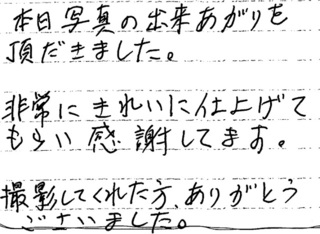 本日写真の出来あがりを
頂だきました。
非常にきれいに仕上げて
もらい感謝してます。
撮影してくれた方、ありがとう
ございました。